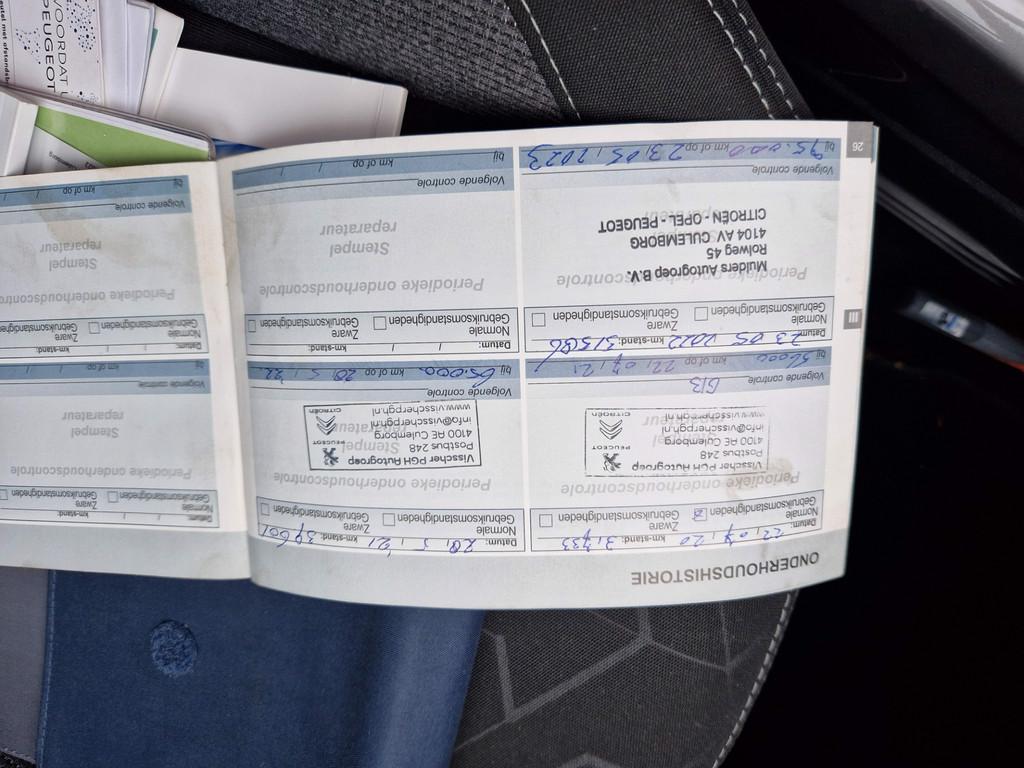 ONDERHOUDSHISTORIE
Datum: 22, 07, 20 km-stand:
Normale Gebruiksomstandigheden
Zware Gebruiksomstandigheden
Periodieke onderhoudscontrole
Visscher PGH Autogroep
Postbus 248
4100 AE Culemborg
info@visscherpgh.nl
www.visscherpgh.nl
PEUGEOT
CITROËN
Volgende controle
bij km of op 22, 07, 21
Datum: 20, 5, '21 km-stand:
Normale Gebruiksomstandigheden
Zware Gebruiksomstandigheden
Periodieke onderhoudscontrole
Stempel
reparateur
Visscher PGH Autogroep
Postbus 248
4100 AE Culemborg
info@visscherpgh.nl
www.visscherpgh.nl
PEUGEOT
CITROËN
Volgende controle
bij 65.000 km of op 20, 5, '22
Datum: 23 05 2022 km-stand:
Normale Gebruiksomstandigheden
Zware Gebruiksomstandigheden
Periodieke onderhoudscontrole
Mulders Autogroep B.V.
Rolweg 45
4104 AV CULEMBORG
CITROËN - OPEL - PEUGEOT
Volgende controle
bij 95.000 km of op 23, 05, 2023
Datum: / / km-stand:
Normale Gebruiksomstandigheden
Zware Gebruiksomstandigheden
Periodieke onderhoudscontrole
Stempel
reparateur
Volgende controle
bij km of op / /
III
26
Datum: / / km-stand:
Normale Gebruiksomstandigheden
Zware Gebruiksomstandigheden
Periodieke onderhoudscontrole
Stempel
reparateur
Volgende controle
bij km of op / /
Datum: / / km-stand:
Normale Gebruiksomstandigheden
Zware Gebruiksomstandigheden
Periodieke onderhoudscontrole
Stempel
reparateur
Volgende controle
bij km of op / /
VOORDAT U
PEUGEOT